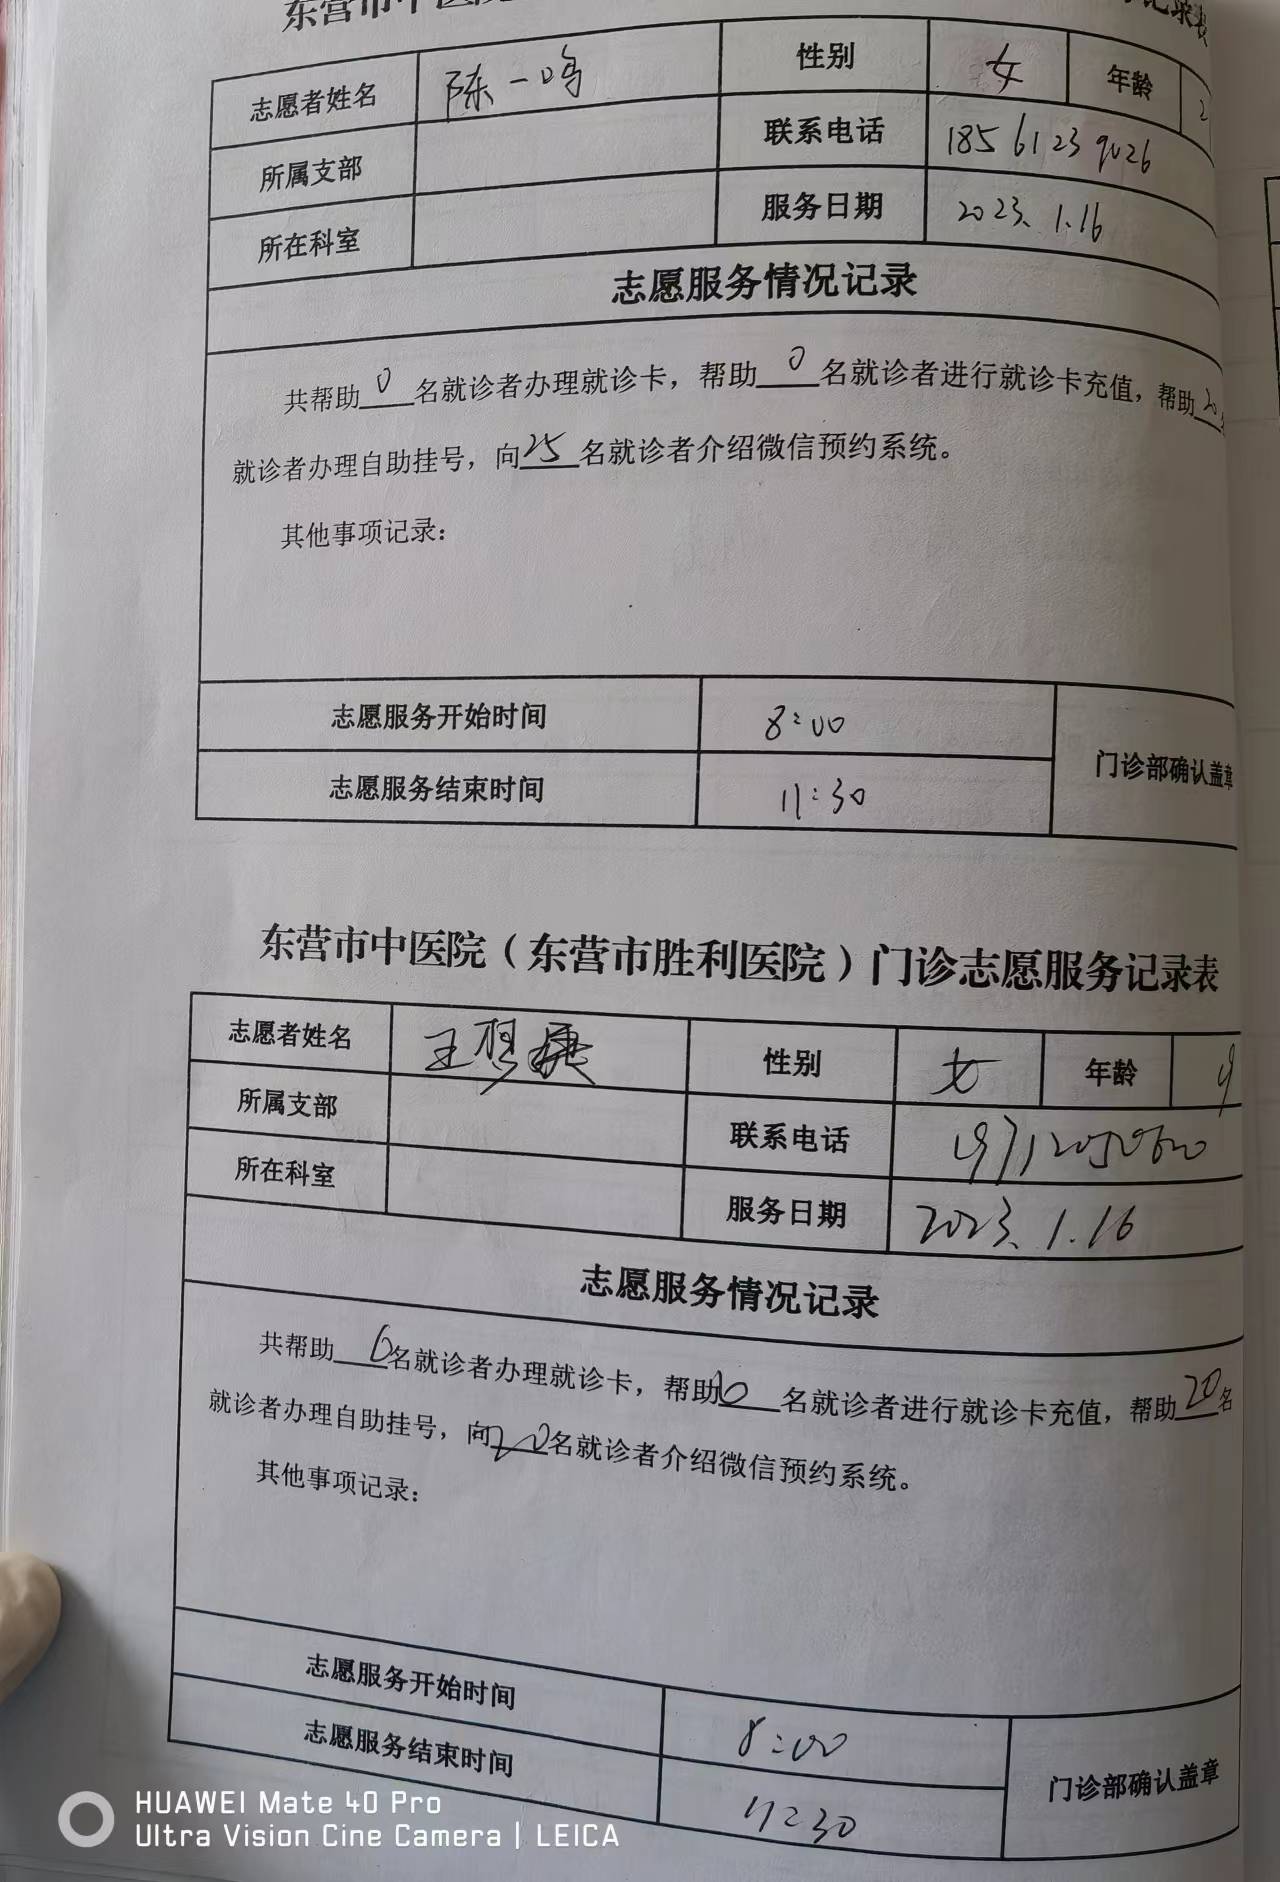 东营市中医院 记录表
志愿者姓名 陈一鸣 性别 女 年龄 2
所属支部 联系电话 18561239026
所在科室 服务日期 2023.1.16
志愿服务情况记录
共帮助0名就诊者办理就诊卡，帮助0名就诊者进行就诊卡充值，帮助20名
就诊者办理自助挂号，向25名就诊者介绍微信预约系统。
其他事项记录：
志愿服务开始时间 8:00
门诊部确认盖章
志愿服务结束时间 11:30
东营市中医院（东营市胜利医院）门诊志愿服务记录表
志愿者姓名 王 性别 女 年龄 19
所属支部 联系电话
所在科室 服务日期 2023.1.16
志愿服务情况记录
共帮助6名就诊者办理就诊卡，帮助名就诊者进行就诊卡充值，帮助20名
就诊者办理自助挂号，向20名就诊者介绍微信预约系统。
其他事项记录：
志愿服务开始时间 8:00
门诊部确认盖章
志愿服务结束时间 11:30
HUAWEI Mate 40 Pro
Ultra Vision Cine Camera | LEICA